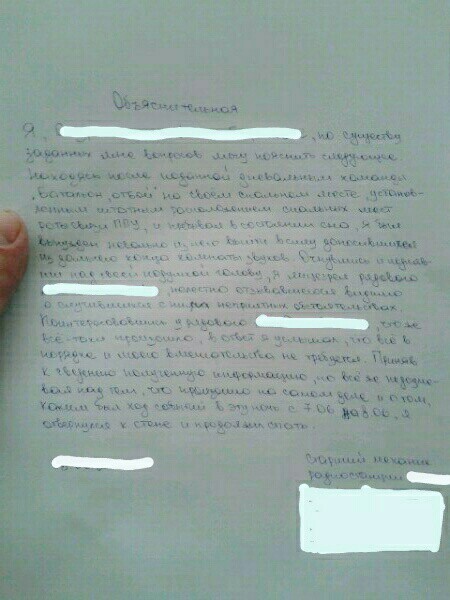 Объяснительная
Я, , по существу
заданных мне вопросов могу пояснить следующее
Находясь после поданной дневальным команды
"Батальон, отбой" на своем спальном месте, установ-
ленным штатным расположением спальных мест
роты связи ПВУ, и пребывая в состоянии сна, я был
вынужден невольно из него выйти ввиду доносившихся
из дальнего конца комнаты звуков. Очнувшись и подняв
над своей подушкой голову, я лицезрел рядового
, нелестно отзывавшегося видимо
о случившихся с ним неприятных обстоятельствах.
Поинтересовавшись у рядового , что же
всё-таки произошло, в ответ я услышал, что всё в
порядке и моего вмешательства не требуется. Приняв
к сведению полученную информацию, но всё же недоуме-
вая над тем, что произошло на самом деле и о том,
каким был ход событий в эту ночь с 7.06 на 8.06, я
отвернулся к стене и продолжил спать.
Старший механик
радиостанции